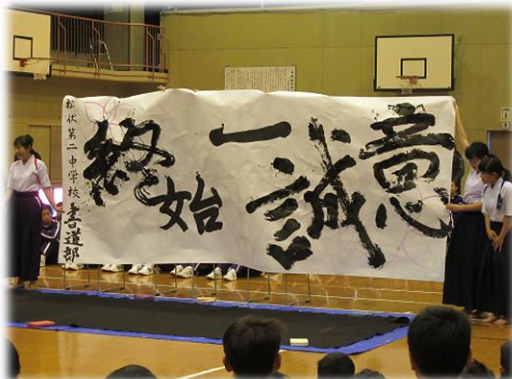 終始一誠意
松伏第二中学校 書道部